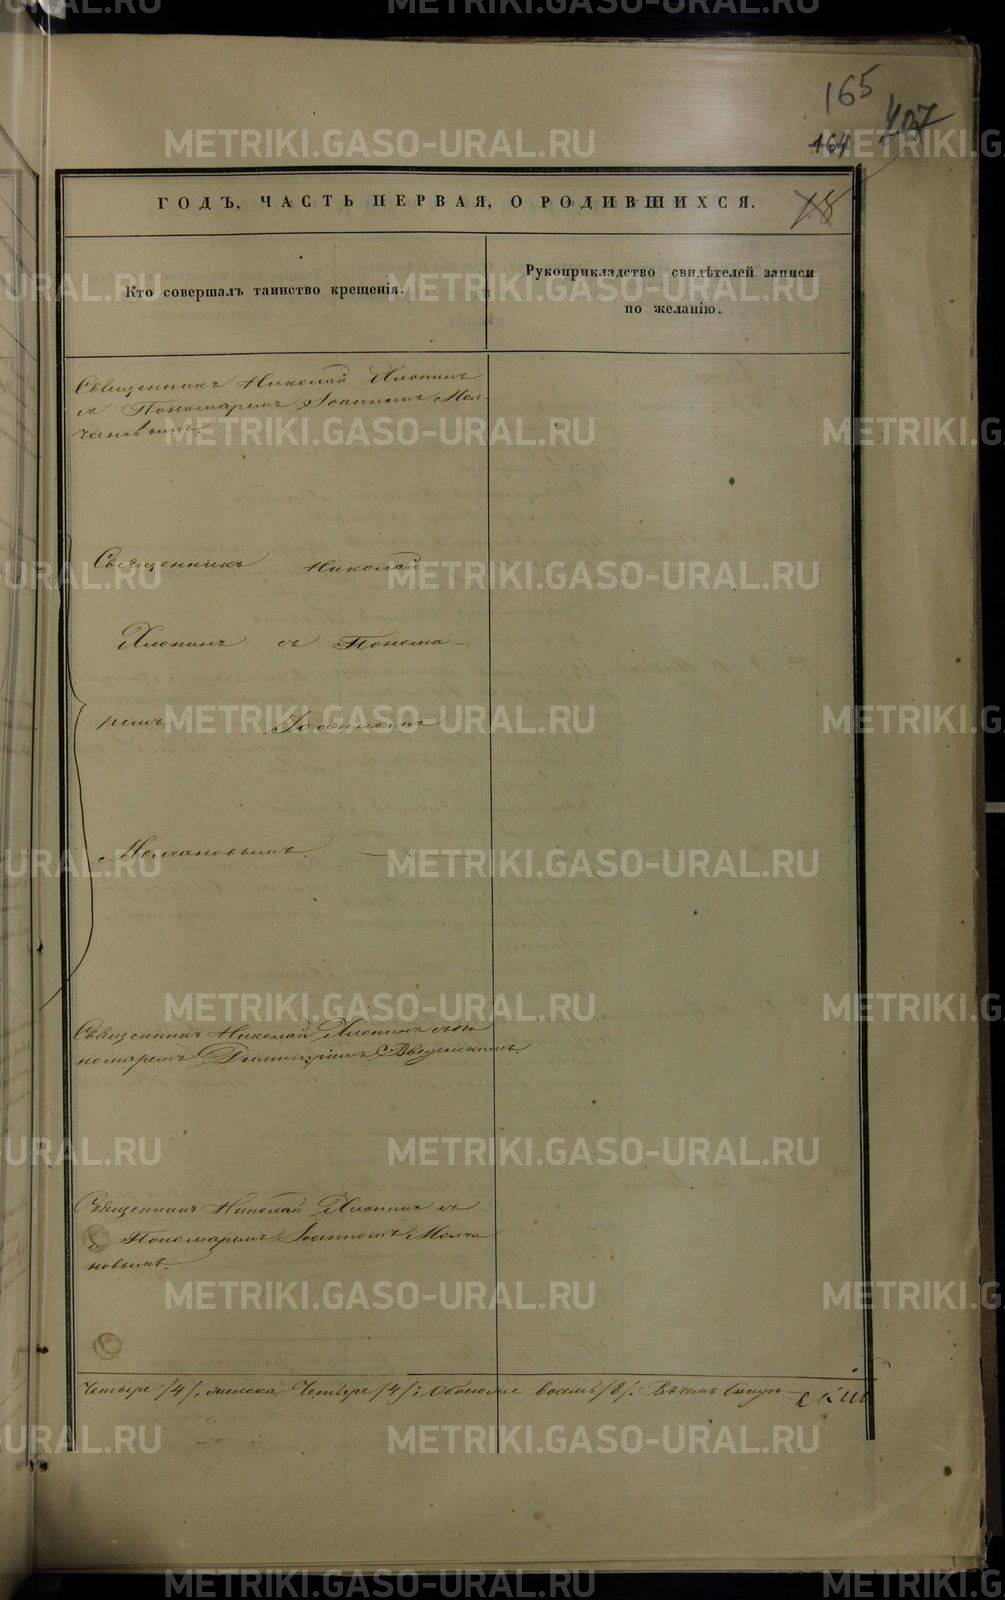 165
164 407
ГОДЪ, ЧАСТЬ ПЕРВАЯ, О РОДИВШИХСЯ.
18
Кто совершалъ таинство крещенія.
Рукоприкладство свидѣтелей записи
по желанію.
Священникъ Николай Хлопинъ
съ Пономаремъ Іоанномъ Мол-
чановымъ.
Священникъ Николай
Хлопинъ съ Понома-
ремъ Іоанномъ
Молчановымъ.
Священникъ Николай Хлопинъ съ По
номаремъ Димитріемъ Введенскимъ.
Священникъ Николай Хлопинъ съ
Пономаремъ Іоанномъ Молча
новымъ.
Четыре /4/, женска Четыре /4/; обоихъ восемь /8/. Въ чемъ
METRIKI.GASO-URAL.RU